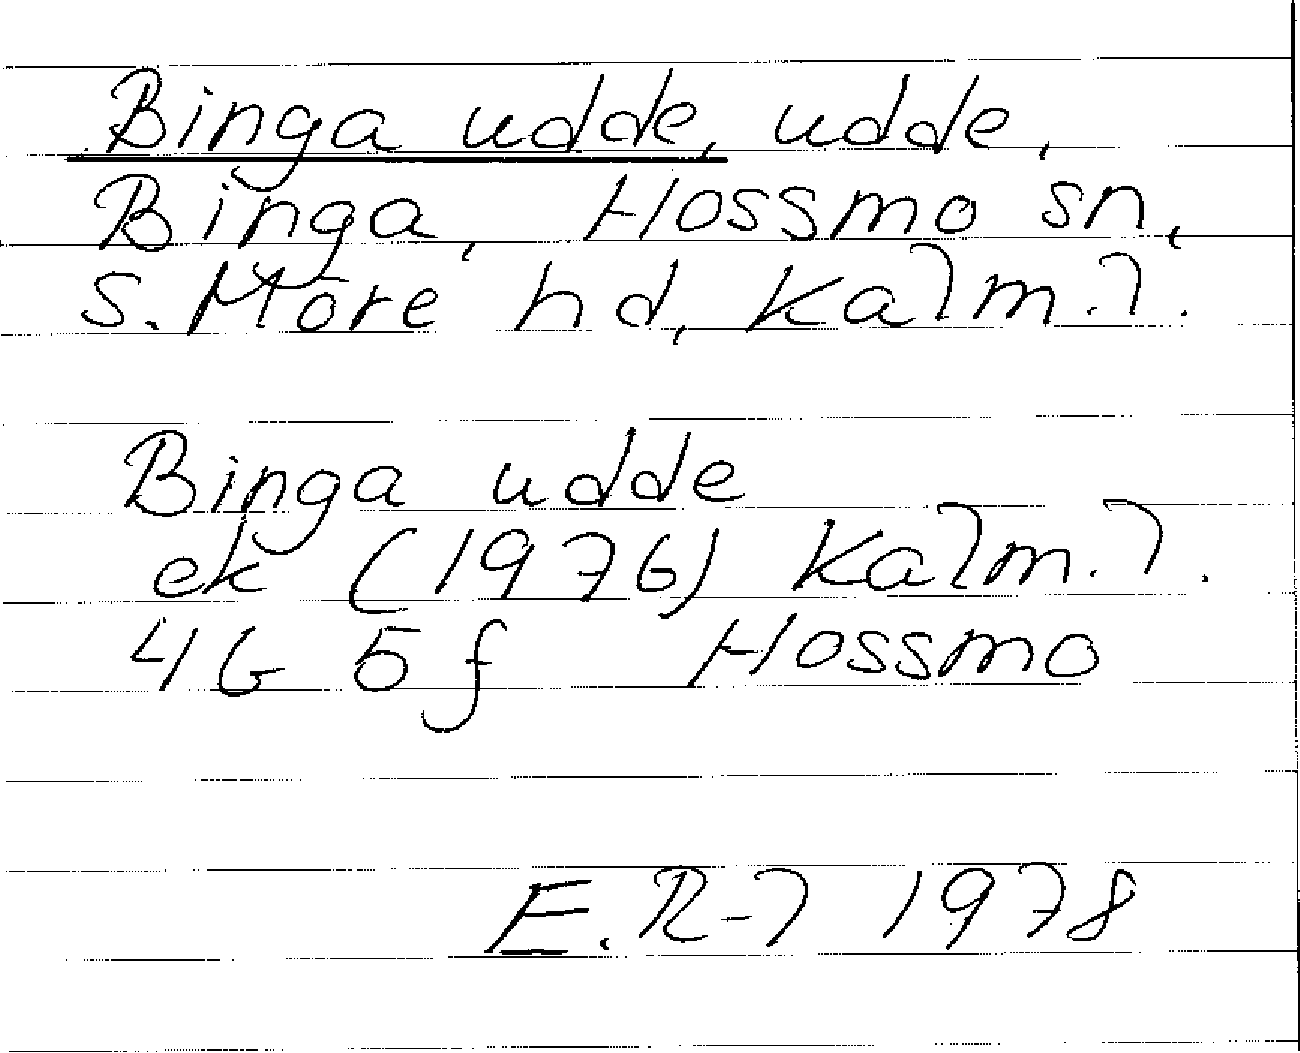 Binga udde, udde,
Binga, Hossmo sn,
S. Möre hd, Kalm. l.
Binga udde
ek (1976) Kalm. l.
4G 5f Hossmo
E. R-l 1978